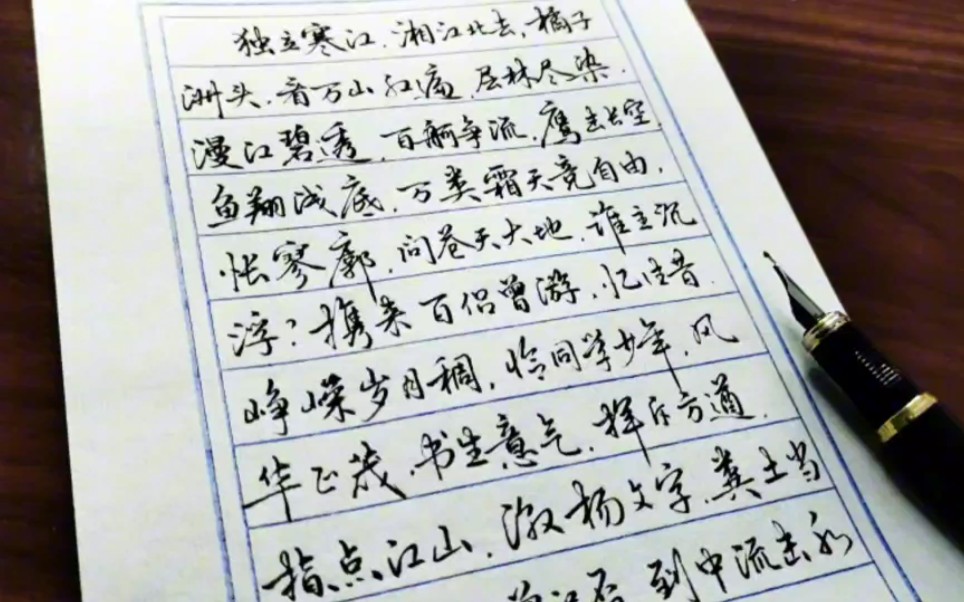 独立寒江,湘江北去,橘子
洲头,看万山红遍,层林尽染,
漫江碧透,百舸争流,鹰击长空
鱼翔浅底,万类霜天竞自由,
怅寥廓,问苍天大地,谁主沉
浮?携来百侣曾游,忆往昔,
峥嵘岁月稠,恰同学少年,风
华正茂,书生意气,挥斥方遒,
指点江山,激杨文字,粪土当
曾记否,到中流击水